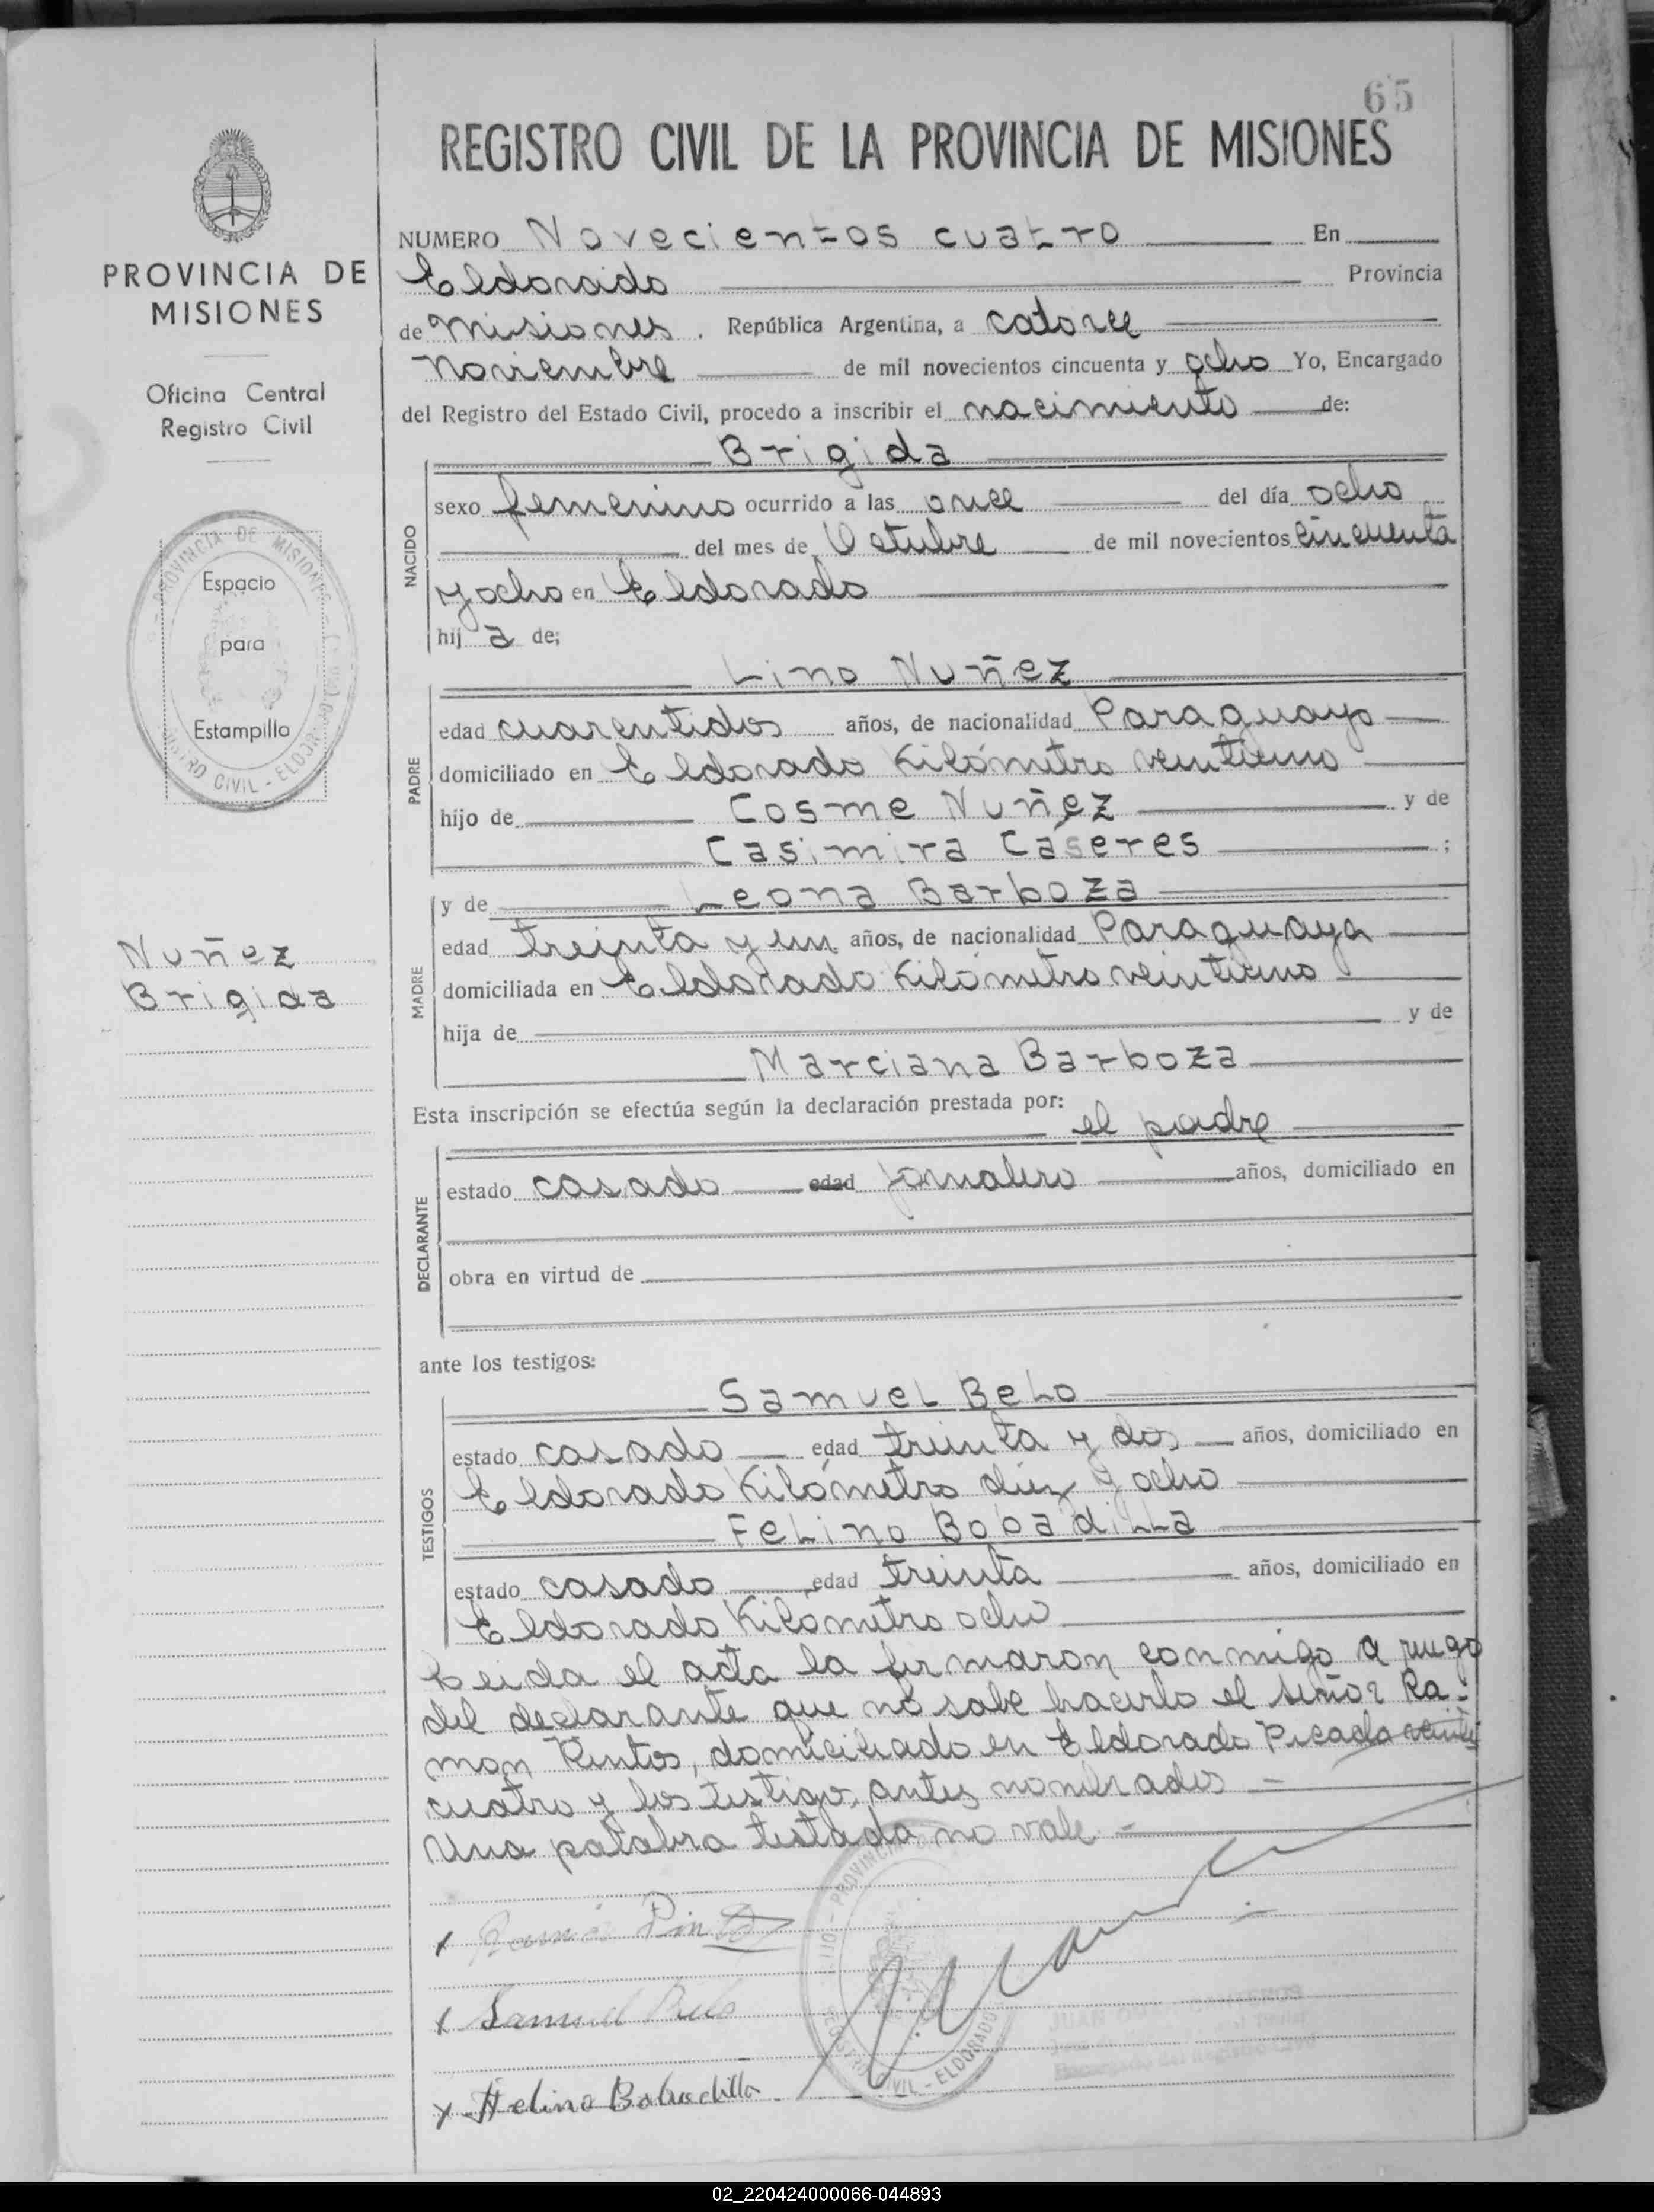 65
REGISTRO CIVIL DE LA PROVINCIA DE MISIONES
PROVINCIA DE
MISIONES
Oficina Central
Registro Civil
PROVINCIA DE MISIONES
Espacio
para
Estampillo
CIVIL - ELDORADO
Nuñez
Brigida
NUMERO Novecientos cuatro En
Eldorado Provincia
de Misiones. República Argentina, a catorce
Noviembre de mil novecientos cincuenta y ocho Yo, Encargado
del Registro del Estado Civil, procedo a inscribir el nacimiento de:
NACIDO
Brigida
sexo femenino ocurrido a las once del día ocho
del mes de Octubre de mil novecientos cincuenta
y ocho en Eldorado
hij a de;
PADRE
Lino Nuñez
edad cuarentidos años, de nacionalidad Paraguayo
domiciliado en Eldorado Kilómetro veintiuno
hijo de Cosme Nuñez y de
Casimira Cáseres ;
MADRE
y de Leona Barboza
edad treinta y un años, de nacionalidad Paraguaya
domiciliada en Eldorado Kilómetro veintiuno
hija de y de
Marciana Barboza
Esta inscripción se efectúa según la declaración prestada por:
el padre
DECLARANTE
estado casado edad jornalero años, domiciliado en
obra en virtud de
ante los testigos:
TESTIGOS
Samuel Belo
estado casado edad treinta y dos años, domiciliado en
Eldorado Kilómetro diez y ocho
Felino Bobadilla
estado casado edad treinta años, domiciliado en
Eldorado Kilómetro ocho
Leida el acta la firmaron conmigo a ruego
del declarante que no sabe hacerlo el señor Ra-
mon Pintos, domiciliado en Eldorado Picada veinti
cuatro y los testigos antes nombrados
Una palabra testada no vale
Ramón Pinto
Samuel Belo
Felino Bobadilla
PROVINCIA
CIVIL - ELDORADO
JUAN
Encargado del Registro Civil
02_220424000066-044893